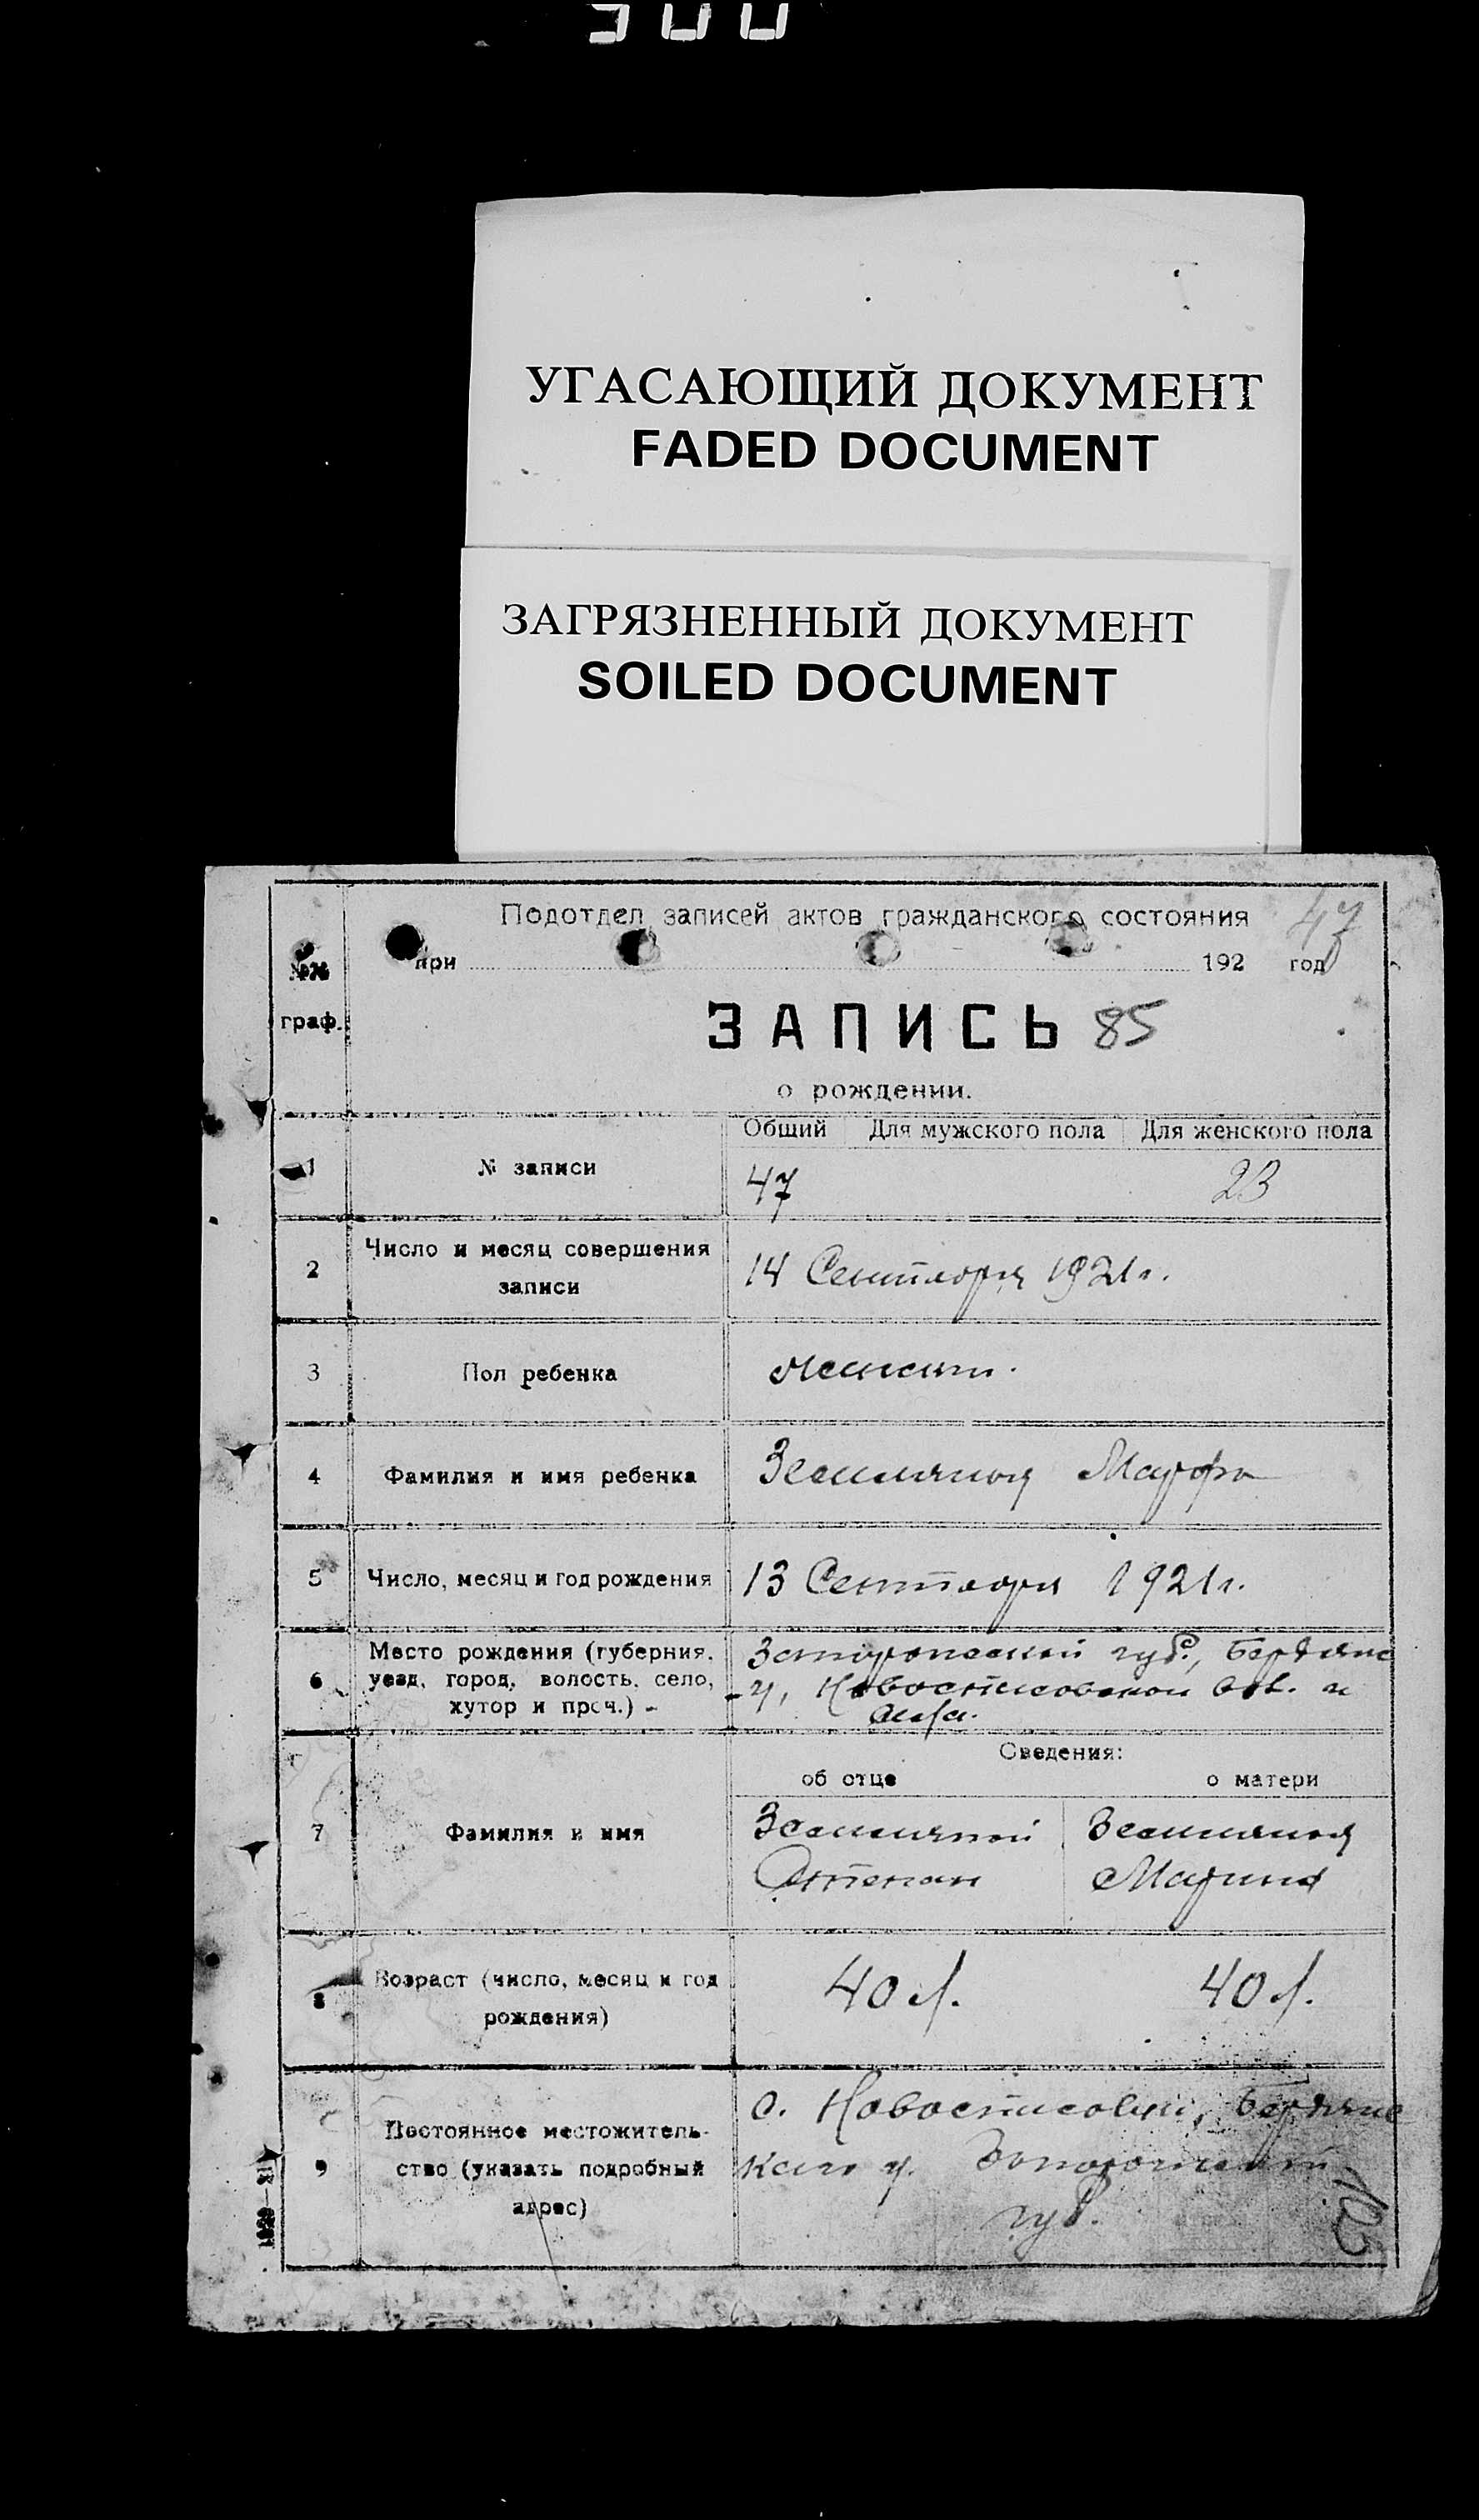 УГАСАЮЩИЙ ДОКУМЕНТ
FADED DOCUMENT
ЗАГРЯЗНЕННЫЙ ДОКУМЕНТ
SOILED DOCUMENT
Подотдел записей актов гражданского состояния 47
при 192 год
№№ граф.
ЗАПИСЬ 85
о рождении.
Общий Для мужского пола Для женского пола
1 № записи 47 23
2 Число и месяц совершения
записи
14 Сентября 1921 г.
3 Пол ребенка женск.
4 Фамилия и имя ребенка Земляная Мавра
5 Число, месяц и год рождения 13 Сентября 1921 г.
6 Место рождения (губерния,
уезд, город, волость, село,
хутор и проч.)
губ., Бердянс
- у, вол. и
села.
Сведения:
об отце о матери
7 Фамилия и имя
Земляной Земляная
Степан Марина
8 Возраст (число, месяц и год
рождения)
40 л. 40 л.
9 Постоянное местожитель-
ство (указать подробный
адрес)
с. Бердянс
каго у. Запорожской
губ.